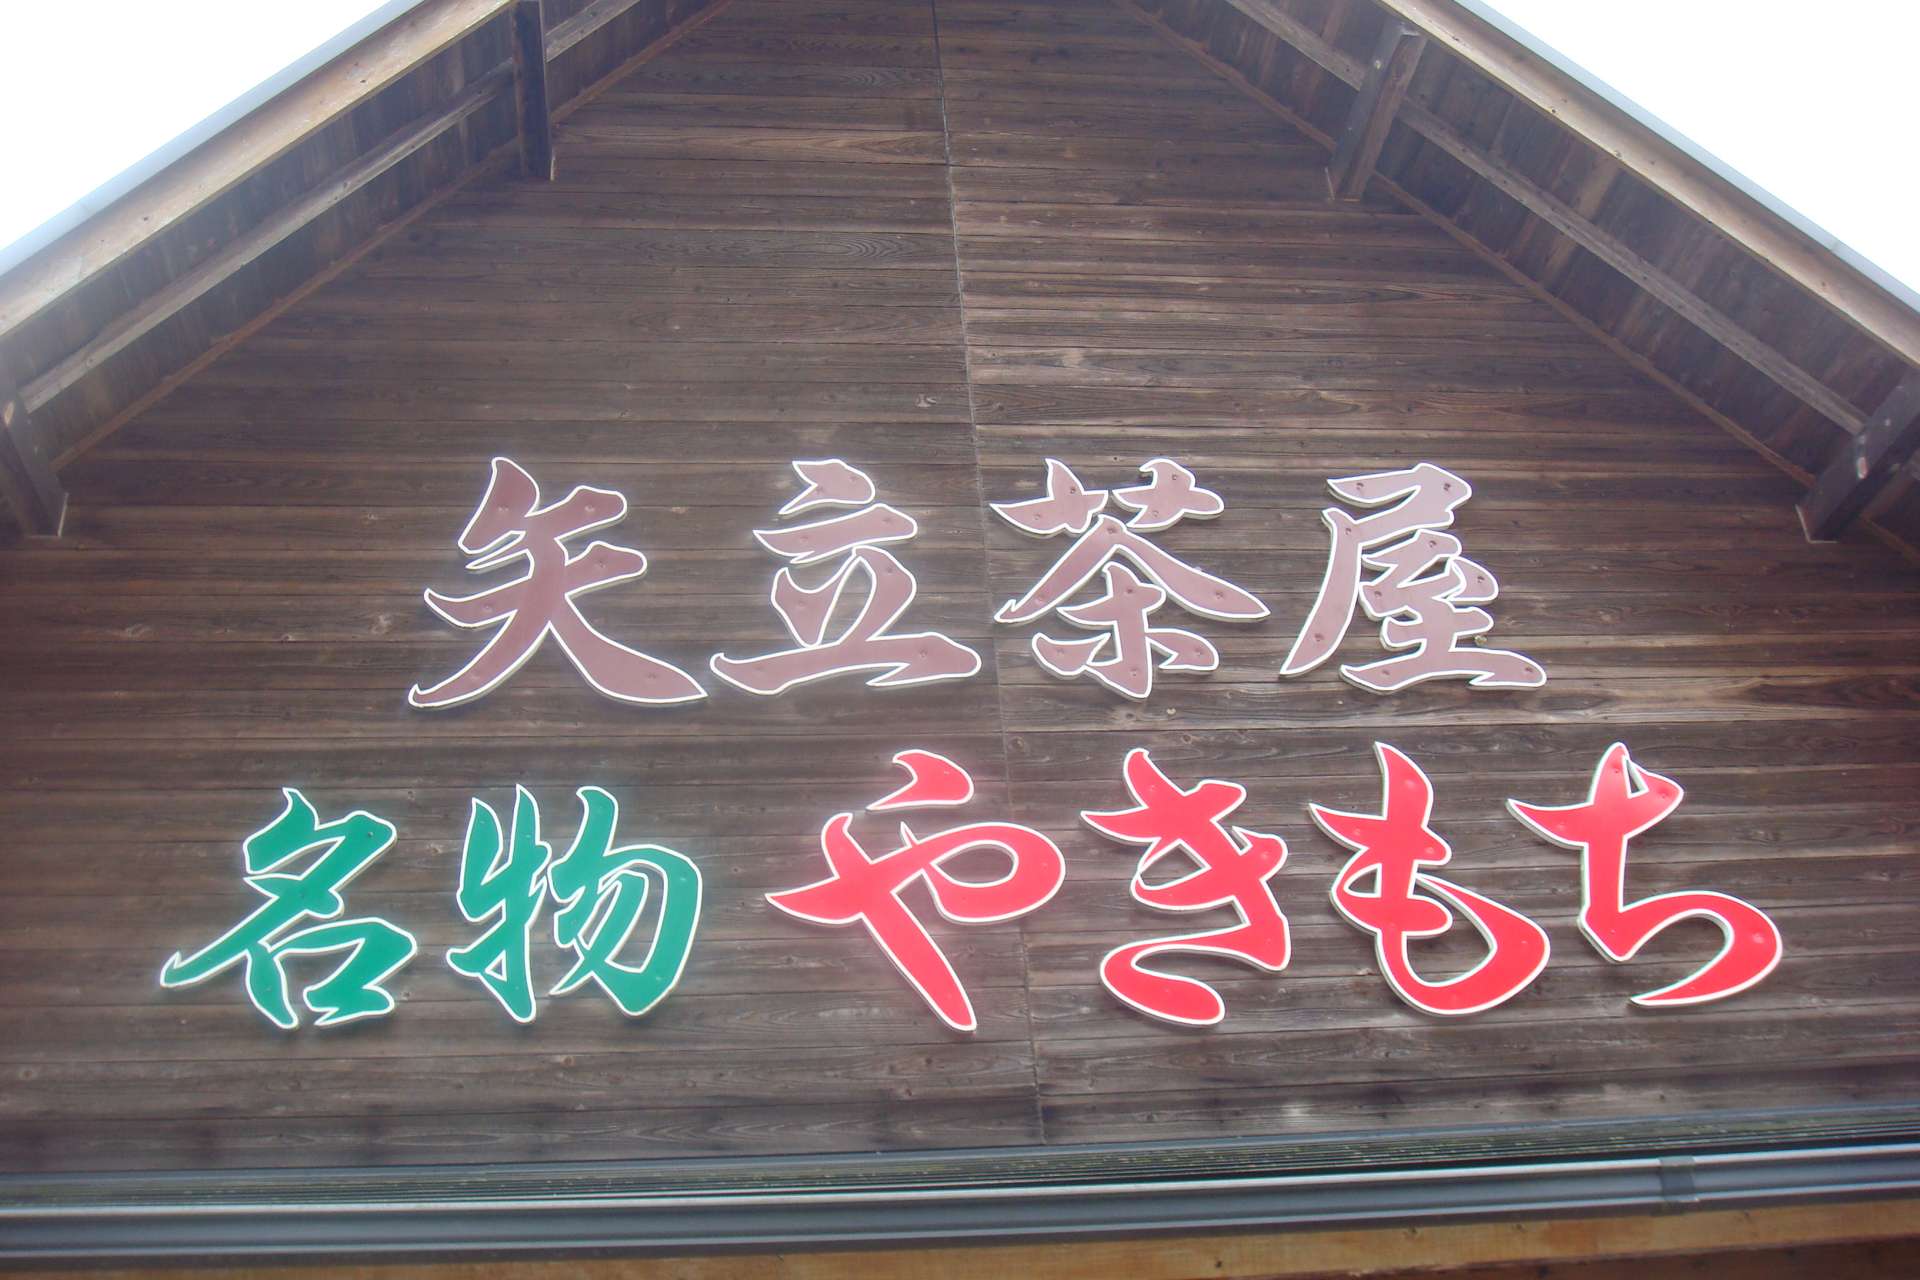 矢立茶屋
名物 やきもち